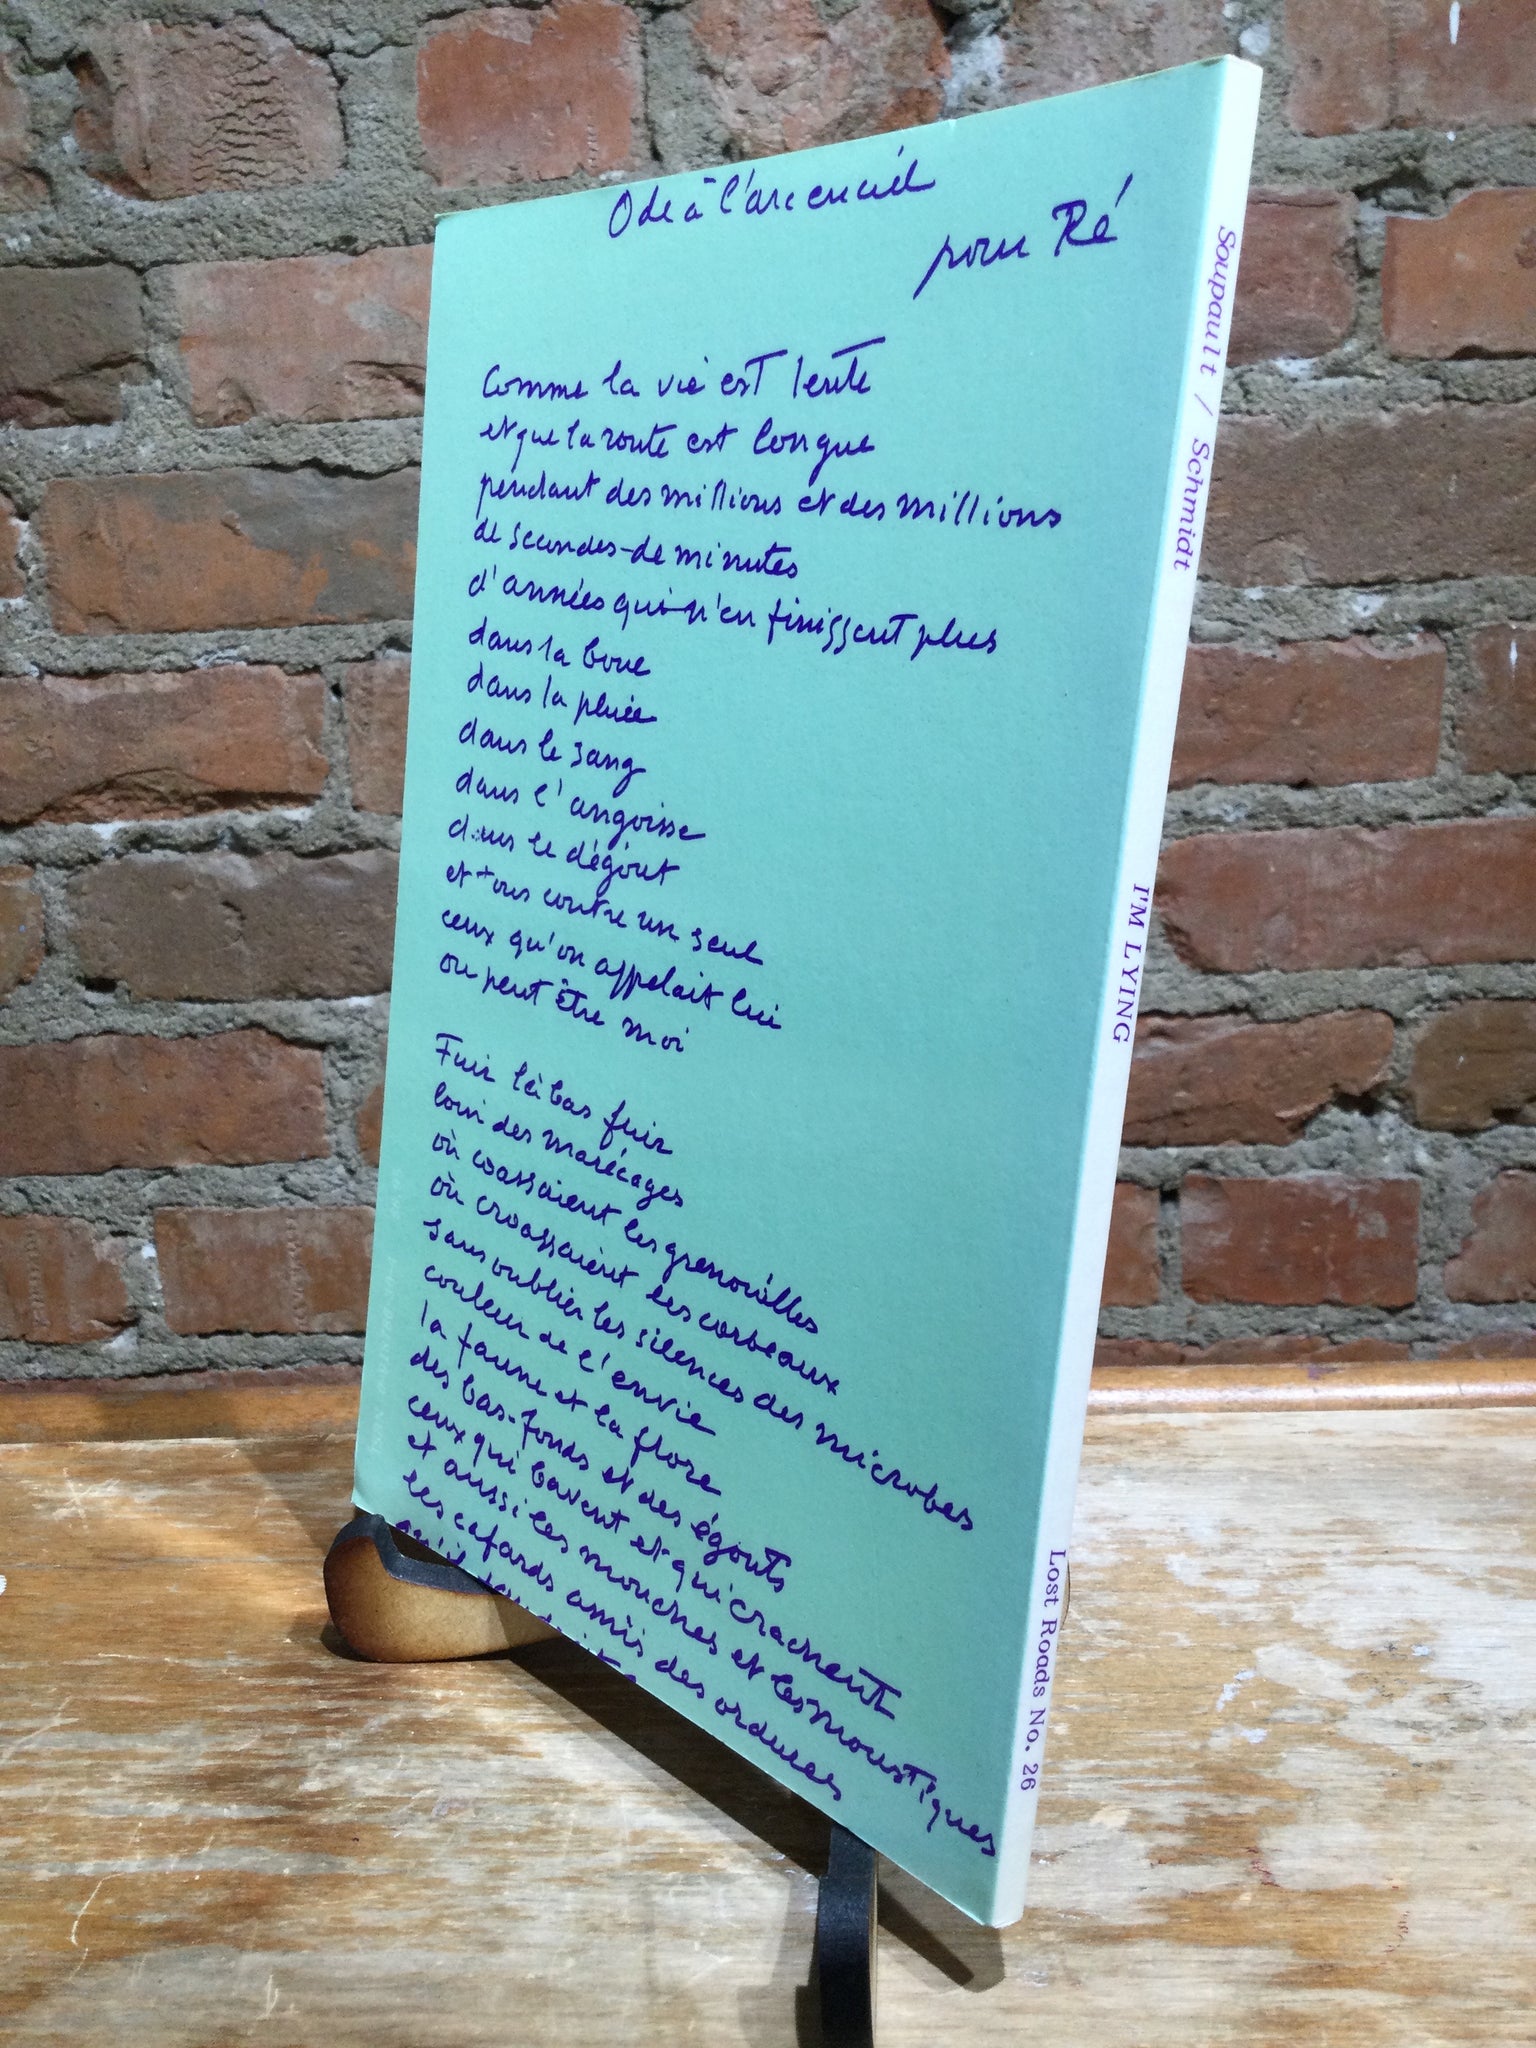 Ode à l'arc en ciel
pour Ré
Comme la vie est lente
et que la route est longue
pendant des millions et des millions
de secondes de minutes
d'années qui n'en finissent plus
dans la boue
dans la pluie
dans le sang
dans l'angoisse
dans le dégoût
et tous contre un seul
ceux qu'on appelait lui
ou peut être moi
Fuir là bas fuir
loin des marécages
où coassaient les grenouilles
où croassaient les corbeaux
sans oublier les silences des microbes
couleur de l'envie
la faune et la flore
des bas-fonds et des égouts
ceux qui bavent et qui crachent
et aussi les mouches et les moustiques
les cafards amis des ordures
qu'il
Soupault / Schmidt
I'M LYING
Lost Roads No. 26